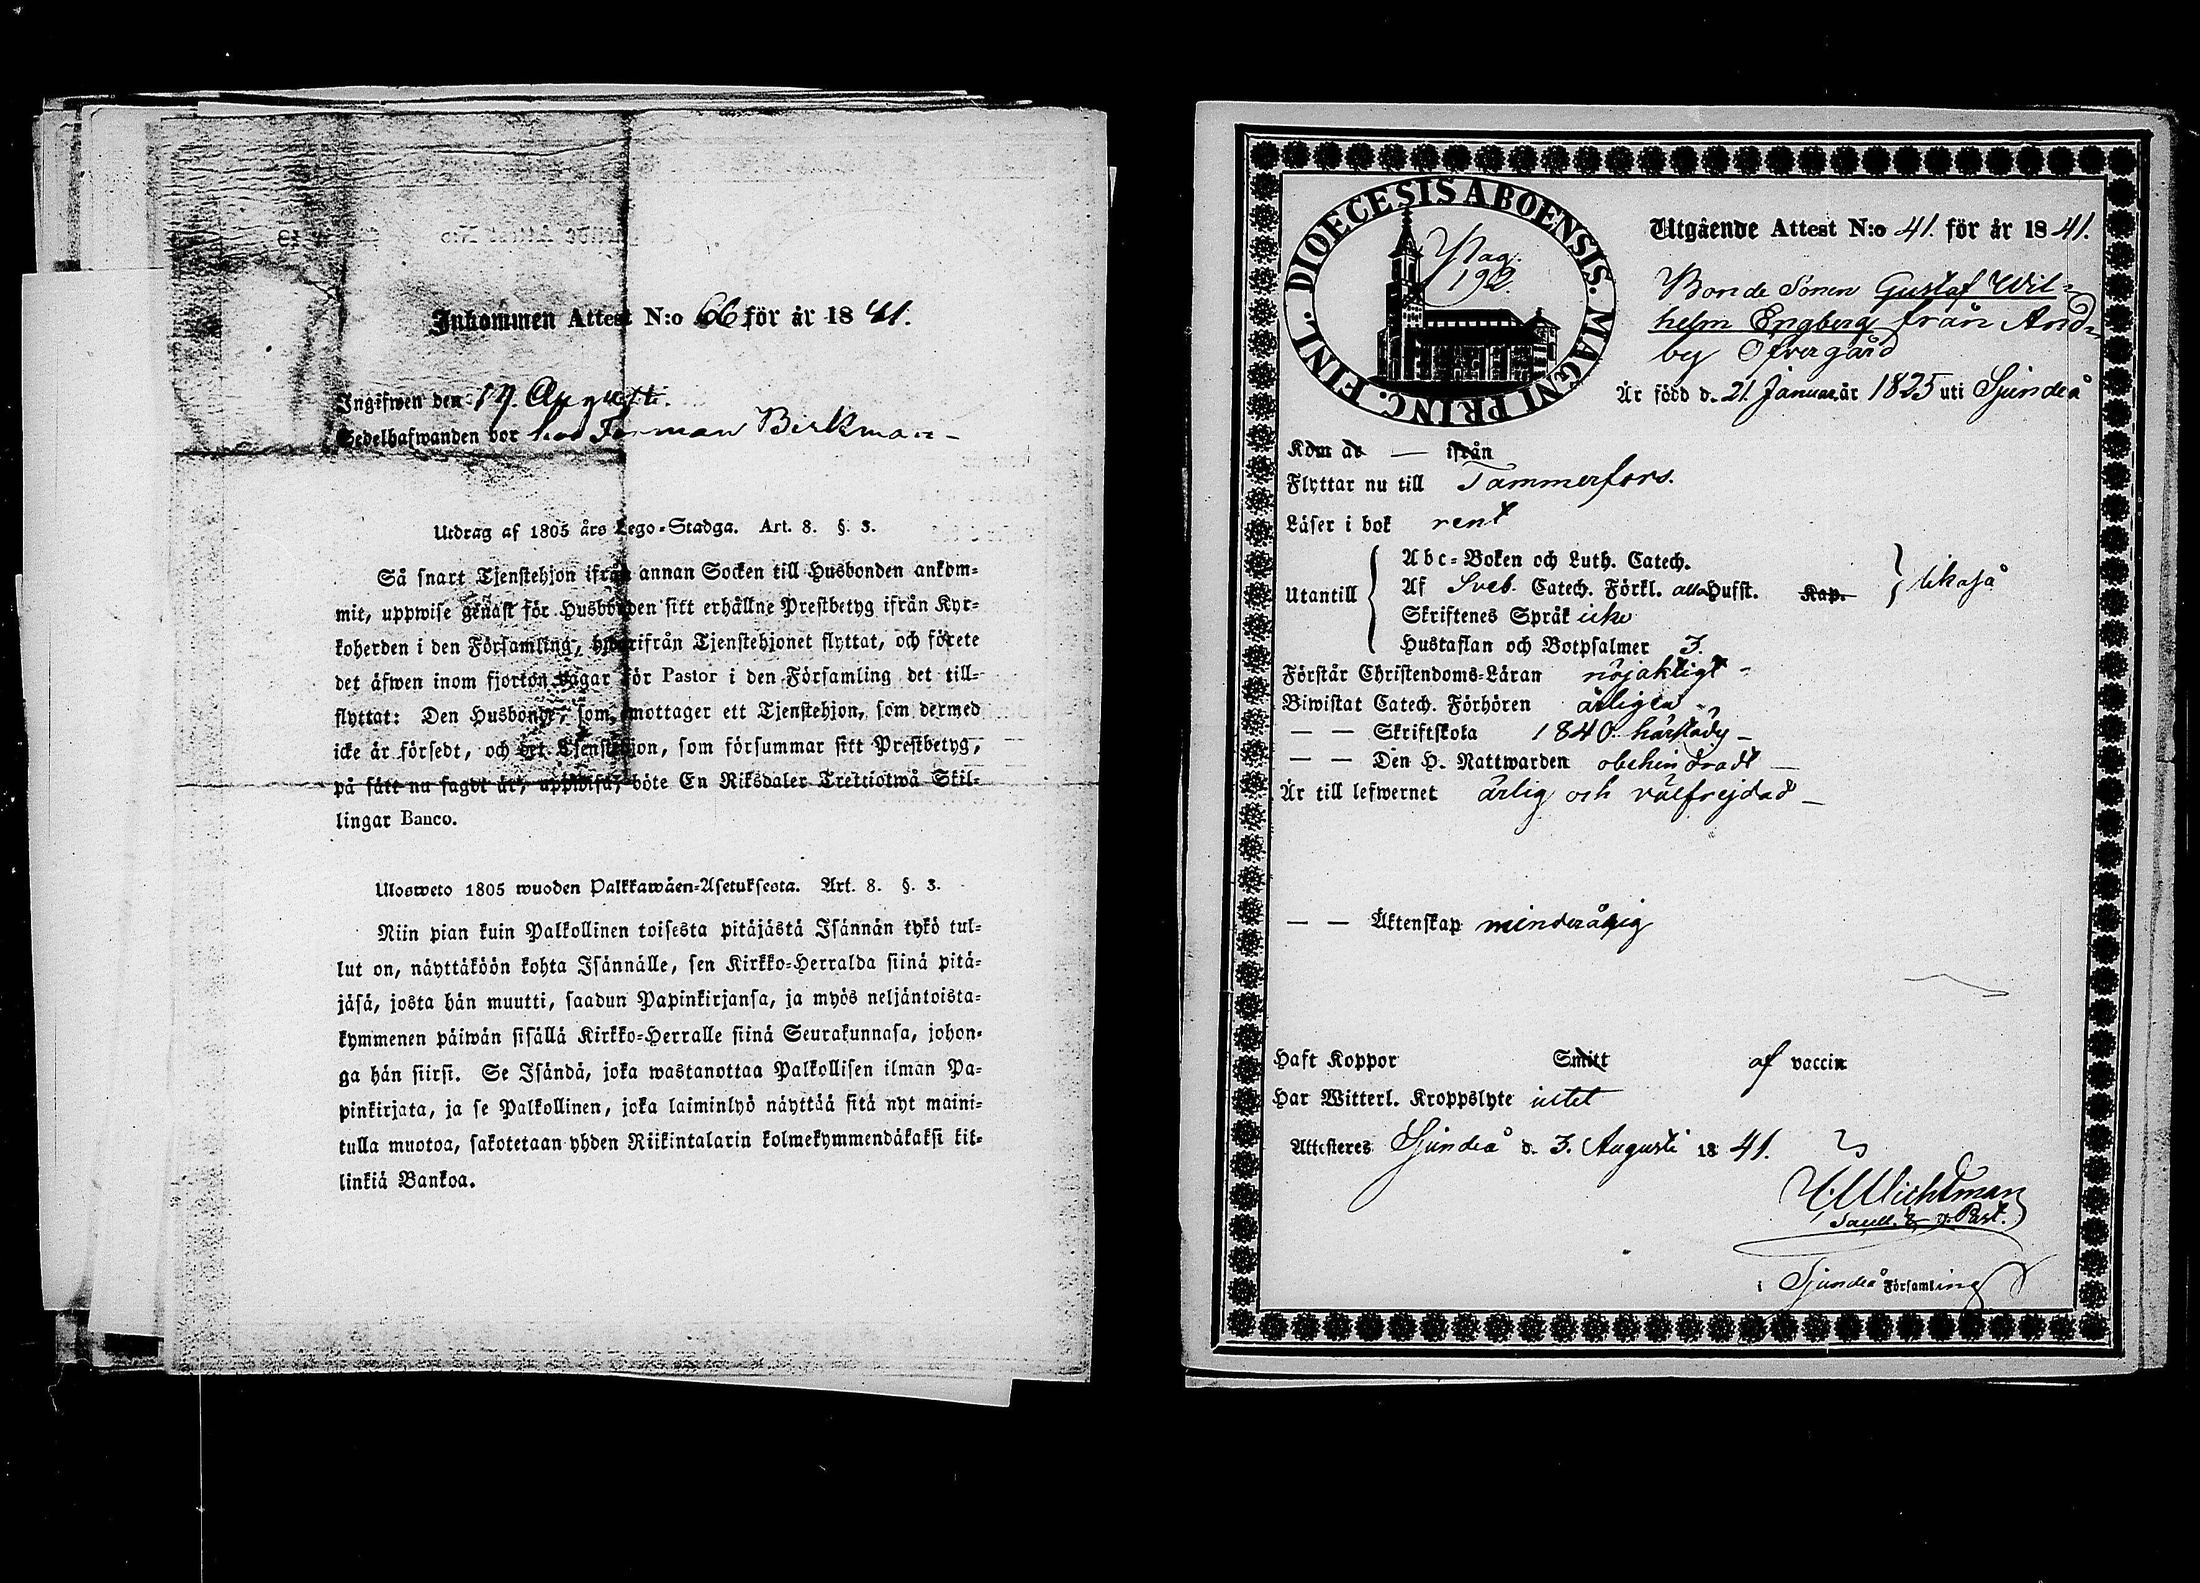 Inkommen Attest N:o 66 för år 1841.
Ingifwen den 17. Augusti.
Sedelhafwanden bor hos Färman Birkman
Utdrag af 1805 års Lego-Stadga. Art. 8. §. 3.
Så snart Tjenstehjon ifrån annan Socken till Husbonden ankom-
mit, uppwise genast för Husbonden sitt erhållne Prestbetyg ifrån Kyr-
koherden i den Församling, hwarifrån Tjenstehjonet flyttat, och förete
det äfwen inom fjorton dagar för Pastor i den Församling det till-
flyttat: Den Husbonde, som emottager ett Tjenstehjon, som dermed
icke är försedt, och det Tjenstehjon, som försummar sitt Prestbetyg,
på sätt nu sagdt är, uppwisa, böte En Riksdaler Trettiotwå Skil-
lingar Banco.
Ulosweto 1805 wuoden Palkkawäen-Asetuksesta. Art. 8. §. 3.
Niin pian kuin Palkollinen toisesta pitäjästä Isännän tykö tul-
lut on, näyttäköön kohta Isännälle, sen Kirkko-Herralda siinä pitä-
jäsä, josta hän muutti, saadun Papinkirjansa, ja myös neljäntoista-
kymmenen päiwän sisällä Kirkko-Herralle siinä Seurakunnasa, johon-
ga hän siirsi. Se Isändä, joka wastanottaa Palkollisen ilman Pa-
pinkirjata, ja se Palkollinen, joka laiminlyö näyttää sitä nyt maini-
tulla muotoa, sakotetaan yhden Riikintalarin kolmekymmendäkaksi kil-
linkiä Bankoa.
DIOECESIS ABOENSIS. MAGNI PRINC. FINL.
Pag.
192.
Utgående Attest N:o 41. för år 1841.
Bonde Sonen Gustaf Wil-
helm Engberg från And-
by Öfvergård
Är född d. 21. Januar. år 1825 uti Sjundeå
Kom år — ifrån
Flyttar nu till Tammerfors.
Läser i bok rent
Utantill
Abc-Boken och Luth. Catech.
Af Sveb. Catech. Förkl. alla Hufst. Kap.
likaså
Skriftenes Språk icke
Hustaflan och Botpsalmer 3.
Förstår Christendoms-Läran nöjaktigt
Biwistat Catech. Förhören årligen
— — Skriftskola 1840 härstädes —
— — Den H. Nattwarden obehindradt —
Är till lefwernet ärlig och välfrejdad —
— — Äktenskap minderårig
Haft Koppor Smitt af vaccin
Har Witterl. Kroppslyte intet
Attesteres Sjundeå d. 3. Augusti 1841.
Wichtman
i Sjundeå Församling